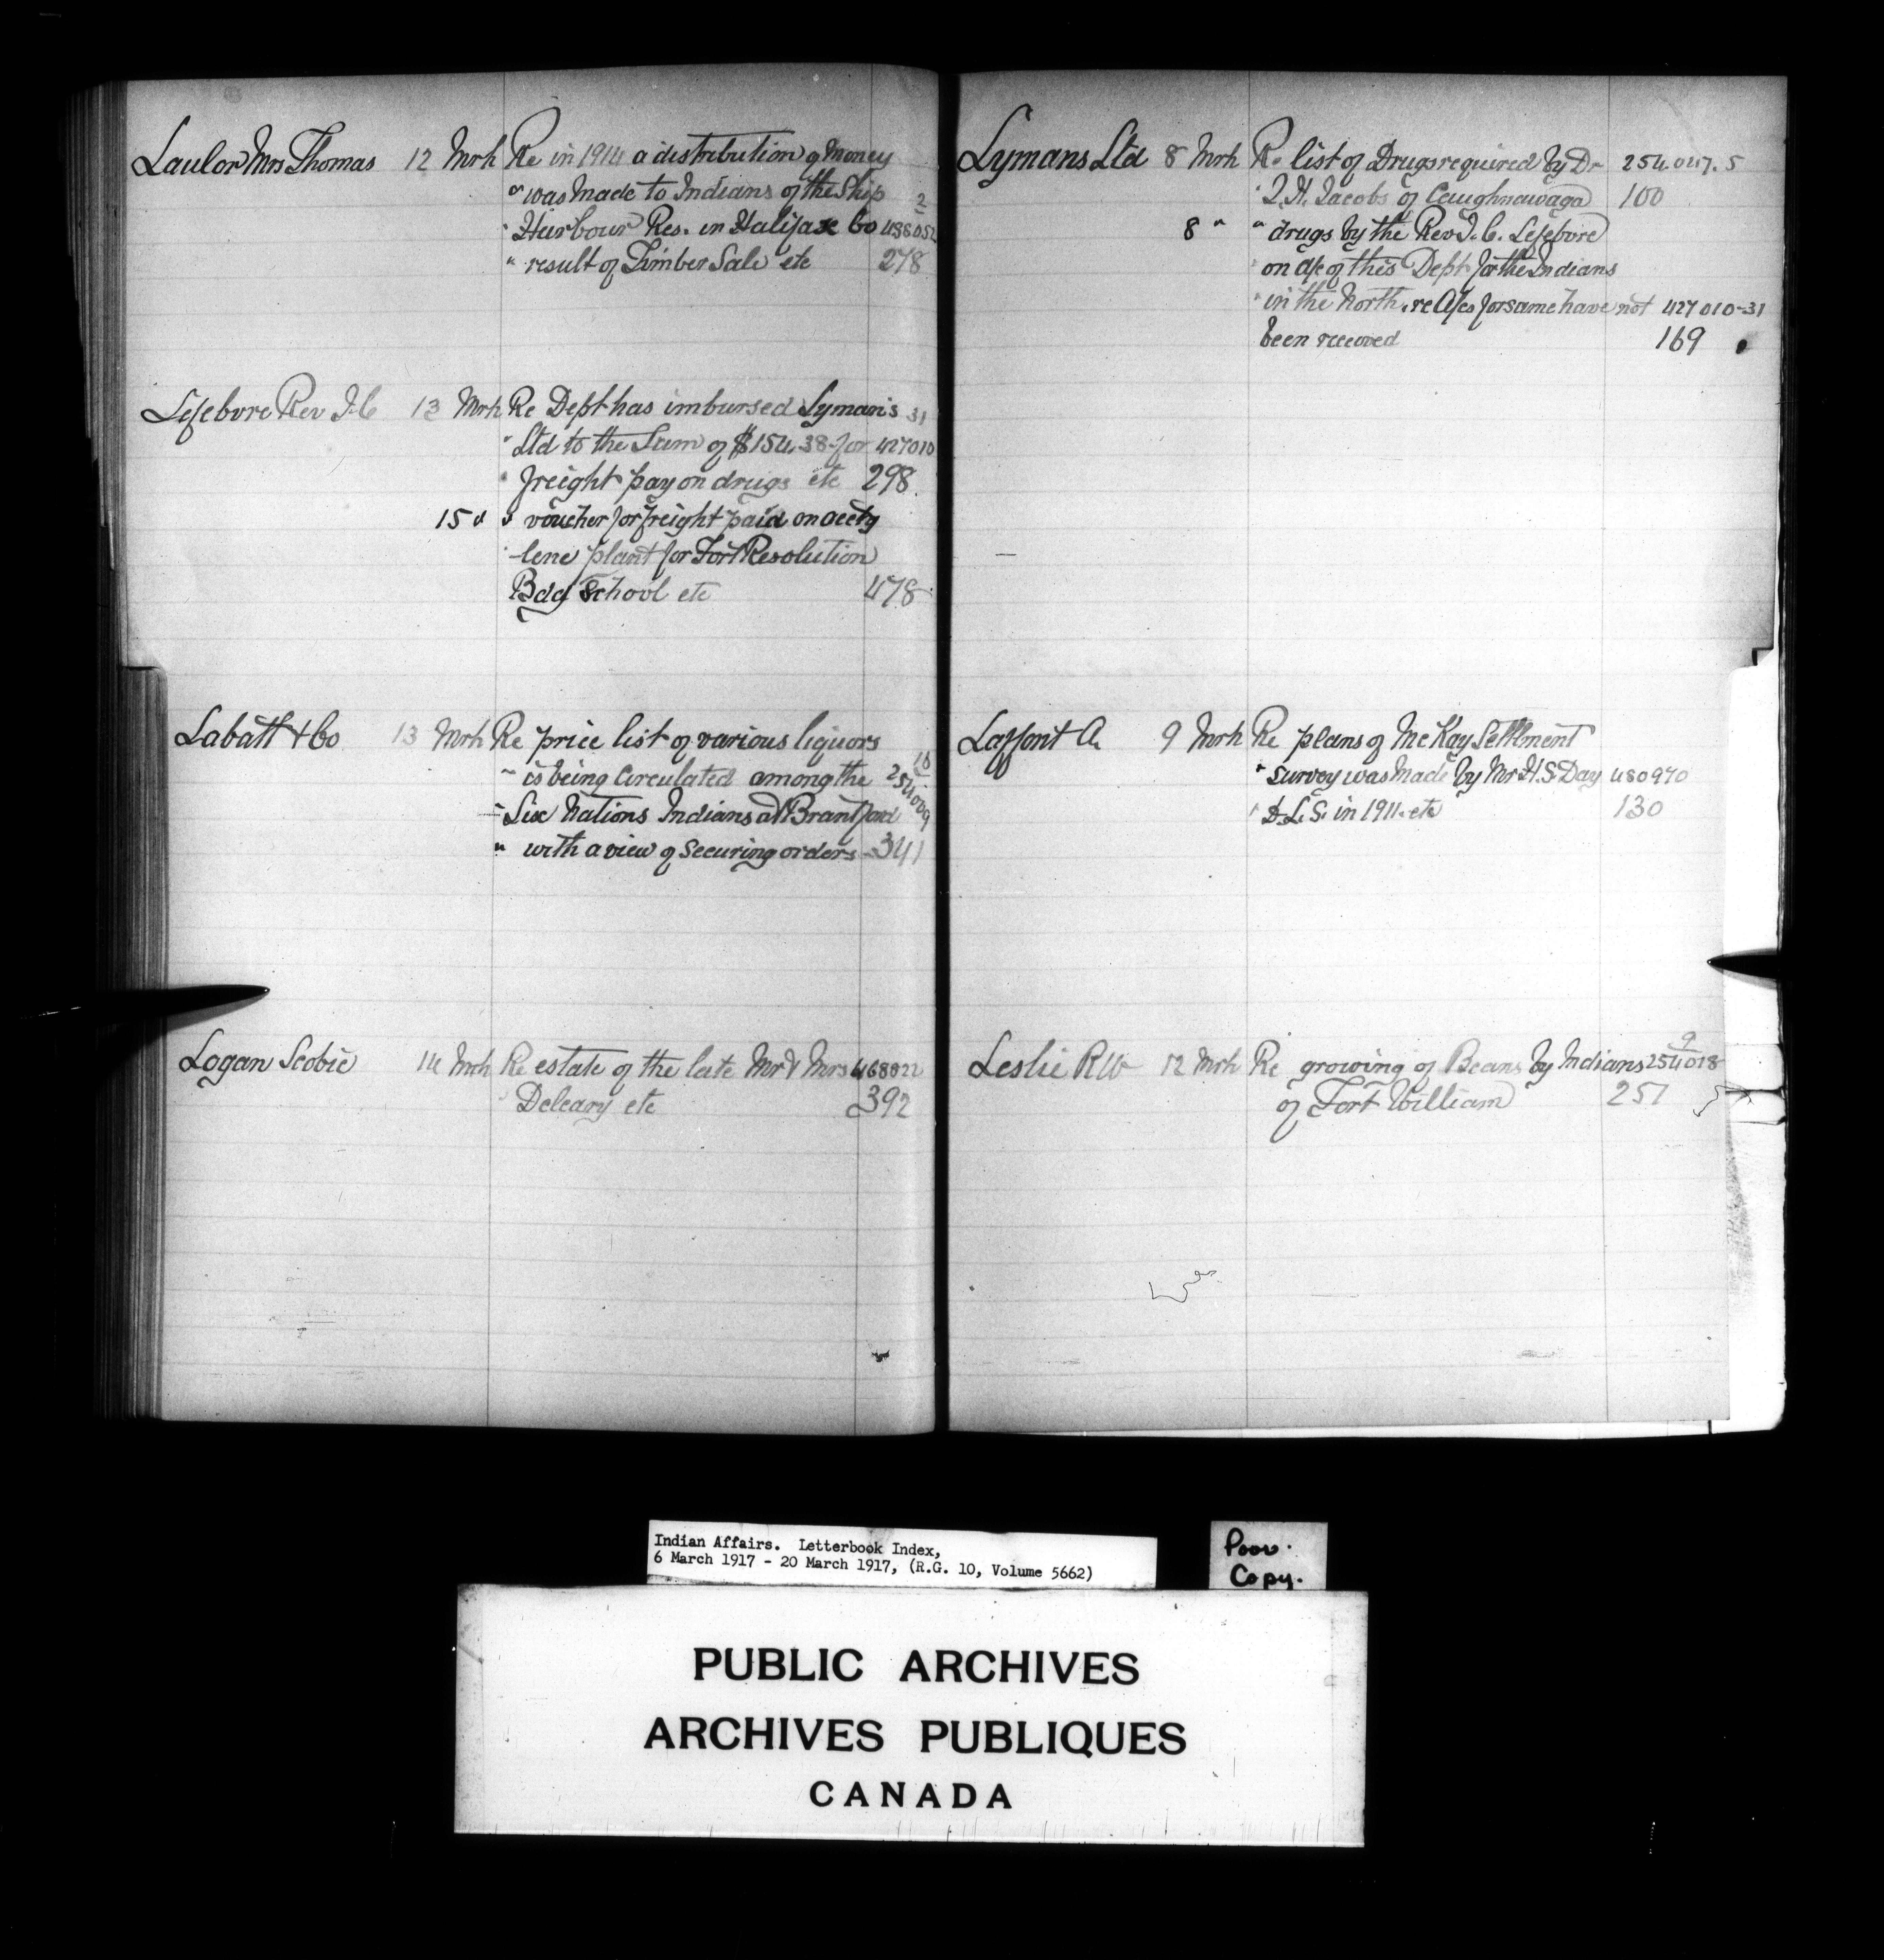 Laulor Mrs Thomas 12 Mrh Re in 1914 a distribution of Money
" was Made to Indians of the Ship 2
" Harbour Res. in Halifax Co 438052
" result of Timber Sale etc 278
Lefebvre Rev J. C 13 Mrh Re Dept has imbursed Lyman's 31
" Ltd to the Sum of $154.38 for 427010
" freight pay on drugs etc 298
15 " " voucher for freight paid on acety
-lene plant for Fort Resolution
Bdg School etc 478
Labatt & Co 13 Mrh Re price list of various liquors 10
" is being Circulated among the 254009
" Six Nations Indians at Brantford
" with a view of Securing orders 341
Logan Scobie 14 Mrh Re estate of the late Mr & Mrs 468822
" Deleary etc 392
Lymans Ltd 8 Mrh Re list of Drugs required by Dr 254047.5
" J. H. Jacobs of Caughnawaga 100
8 " " drugs by the Rev J. C. Lefebvre
on a/c of this Dept for the Indians
" in the North, re A/cs for same have not 427010-31
been received 169
Laffont A. 9 Mrh Re plans of McKay Settlment
" survey was Made by Mr H. S. Day 480970
" D. L. S. in 1911. etc 130
Leslie R W 12 Mrh Re growing of Beans by Indians 254018 9
of Fort William 251
Indian Affairs. Letterbook Index,
6 March 1917 - 20 March 1917, (R.G. 10, Volume 5662)
Poor.
Copy.
PUBLIC ARCHIVES
ARCHIVES PUBLIQUES
CANADA